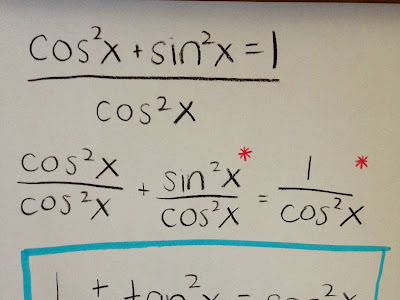 cos²x + sin²x = 1
cos²x
cos²x/cos²x + sin²x*/cos²x = 1/cos²x *
1 + tan²x =